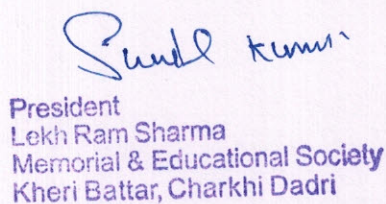 Sunil Kumar
President
Lekh Ram Sharma
Memorial & Educational Society
Kheri Battar, Charkhi Dadri